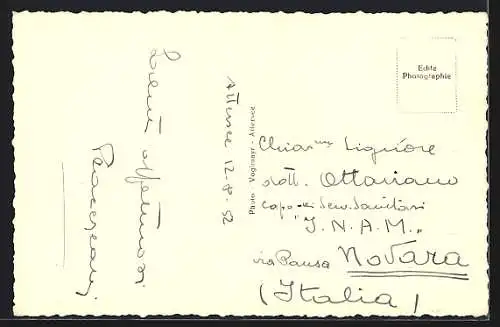 Attersee 12-8-52
Saluti affettuosi
Photo - Voglmayr - Attersee
Echte
Photographie
Chiar.mo Signore
dott. Ottaviano
capo dei Serv. Sanitari
"I.N.A.M."
via Pansa Novara
(Italia)